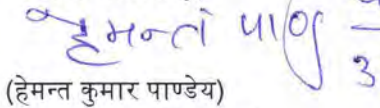 हेमन्त पाण्डे
(हेमन्त कुमार पाण्डेय)